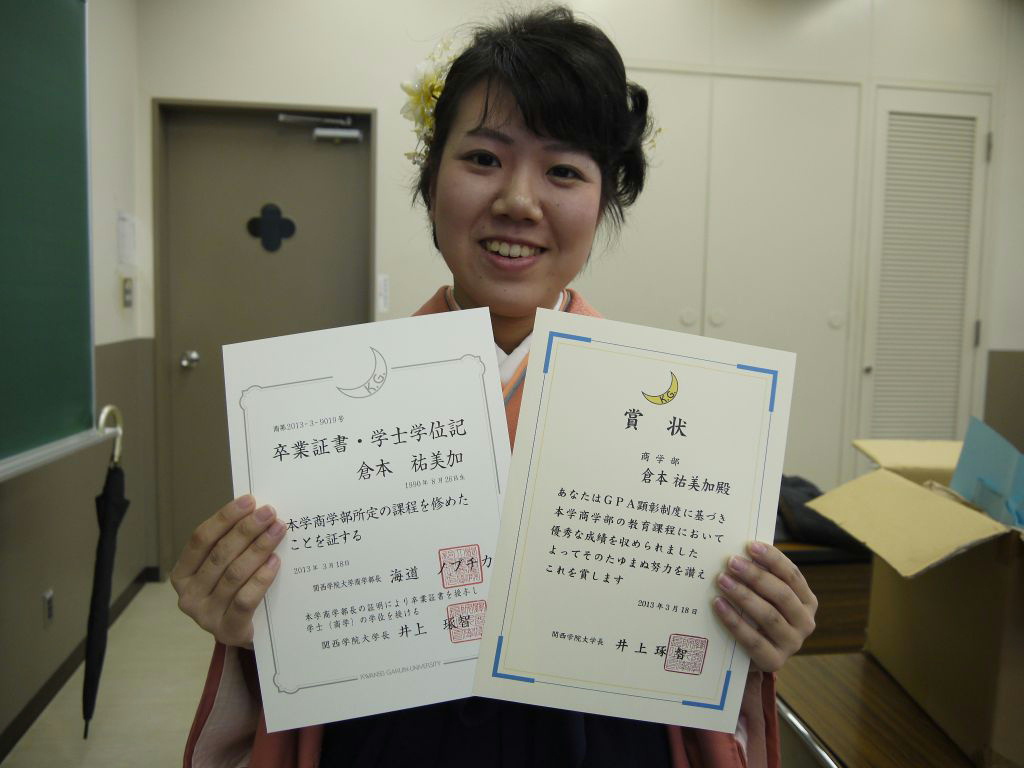 K.G.
商第2013-3-9019号
卒業証書・学士学位記
倉本 祐美加
1990年8月26日生
本学商学部所定の課程を修めた
ことを証する
2013年3月18日
関西学院大学商学部長 海道 ノブチカ
本学商学部長の証明により卒業証書を授与し
学士(商学)の学位を授ける
関西学院大学長 井上 琢智
KWANSEI GAKUIN UNIVERSITY
K.G.
賞状
商学部
倉本 祐美加殿
あなたはGPA顕彰制度に基づき
本学商学部の教育課程において
優秀な成績を収められました
よってそのたゆまぬ努力を讃え
これを賞します
2013年3月18日
関西学院大学長 井上琢智